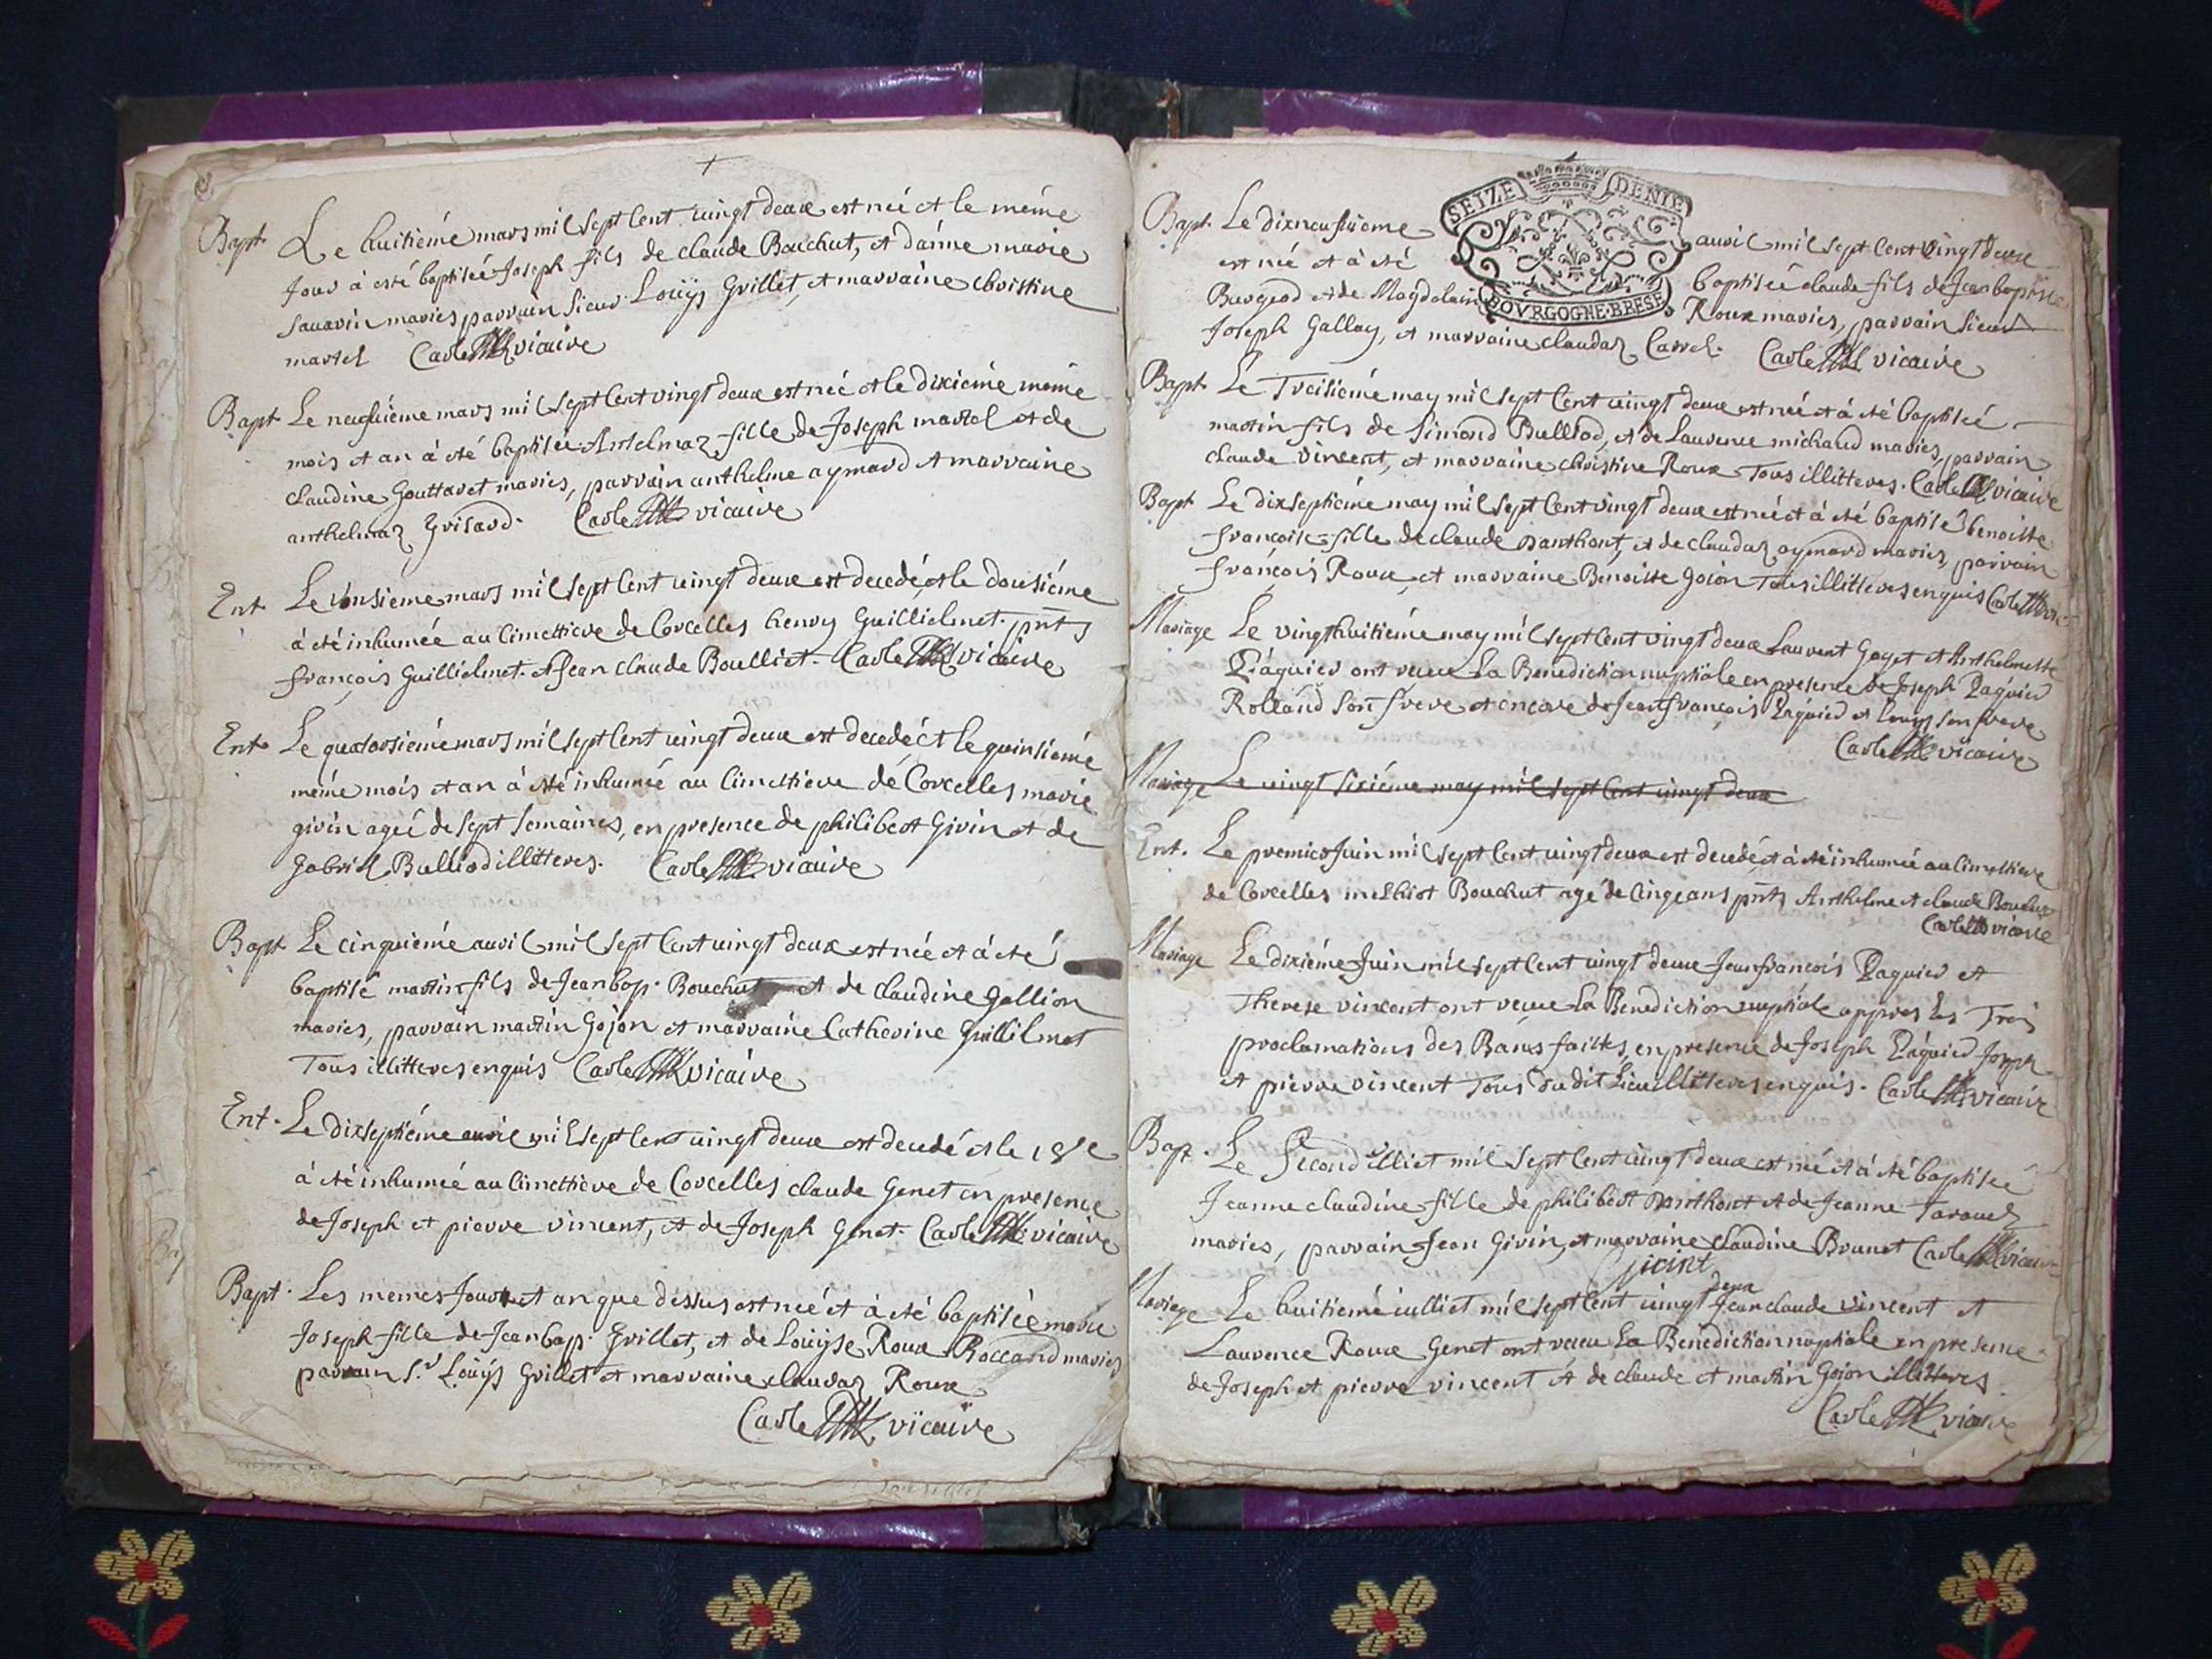 Bapt Le huitiéme mars mil sept cent vingt deux est née et le méme
Jour à esté baptisée Joseph fils de claude Bouchut, et d'anne marie
sauarin mariés parrain Sieur Loüys Grillet, et marraine christine
martel Carle vicaire
Bapt Le neufuiéme mars mil sept cent vingt deux est née et le dixiéme méme
mois et an à été baptisée Antelmaz fille de Joseph martel et de
claudine Gouttaret mariés, parrain anthelme aymard et marraine
anthelmaz Grisard. Carle vicaire
Ent. Le onsieme mars mil sept cent vingt deux est decedé, et le dousiéme
à été inhumée au cimettiere de Corcelles henry Guillielmet. pnts
françois Guillielmet. et Jean claude Boulliet. Carle vicaire
Ent. Le quatorsiéme mars mil sept cent vingt deux est decedé et le quinsiéme
méme mois et an à été inhumée au cimettiere de Corcelles marie
girin ageé de sept semaines, en presence de philibert Girin et de
Gabriel Bulliod illitteres. Carle vicaire
Bapt Le cinquiéme auril mil sept cent vingt deux est née et à été
baptisé martin fils de Jean bap. Bouchut et de claudine Gallion
mariés, parrain martin Gojon et marraine Catherine Guillilmet
Tous illitteres enquis Carle vicaire
Ent. Le dixseptiéme auril mil sept cent vingt deux est decedé et le 18e
à été inhumée au cimettiere de Corcelles claude Genet en presence
de Joseph et pierre vincent, et de Joseph Genet. Carle vicaire
Bapt. Les mémes Jour et an que dessus est née et à été baptisée marie
Joseph fille de Jean bap. Grillet, et de Loüyse Roux Roccand mariés
parrain Sr Loüys Grillet et marraine claudaz Roux
Carle vicaire
SEIZE DENIE
Bapt. Le dixneufuieme auril mil sept cent vingt deux
est née et à été baptisée claude fils de Jean baptiste
Burgeod et de Magdelaine Roux mariés, parrain Sieur
BOVRGOGNE·BRESE
Joseph Gallay, et marraine claudaz Carrel. Carle vicaire
Bapt Le Treisiéme may mil sept cent vingt deux est née et à été baptiseé
martin fils de Simond Bulliod, et de Laurence michaud mariés, parrain
claude vincent, et marraine christine Roux Tous illitteres. Carle vicaire
Bapt Le dixseptiéme may mil sept cent vingt deux est née et à été baptisé benoitte
françoise fille de claude Danthont, et de claudaz aymard mariés, parrain
françois Roux, et marraine Benoitte Gojon Tous illitteres enquis Carle vic
Mariage Le vingthuitiéme may mil sept cent vingt deux Laurent Goyet et Anthelmette
Paquier ont receu La Benediction nuptiale en presence de Joseph Paquier
Rolland son frere et encore de Jean françois Paquier et Louys son frere
Carle vicaire
Mariage Le vingt sixiéme may mil sept cent vingt deux
Ent. Le premier Juin mil sept cent vingt deux est decedé, et à été inhumée au cimettiere
de Corcelles melhiot Bouchut agé de cinq ans pnts Anthelme et claude Bouchut
Carle vicaire
Mariage Le dixiéme Juin mil sept cent vingt deux Jean francois Paquier et
Therese vincent ont receu La Benediction nuptiale appres Les Trois
proclamations des Bans faittes, en presence de Joseph Paquier Joseph
et pierre vincent Tous du dit Lieu illitteres enquis. Carle vicaire
Bap. Le second illiet mil sept cent vingt deux est née et à été baptiseé
Jeanne claudine fille de philibert Danthont et de Jeanne Tarauez
mariés, parrain Jean Girin, et marraine claudine Brunet Carle vicaire
joint
deux
Mariage Le huitiémé iulliet mil sept cent vingt Jean claude vincent et
Laurence Roux Genet ont receu La Benediction nuptiale en presence
de Joseph et pierre vincent et de claude et martin Gojon illitteres
Carle vicaire